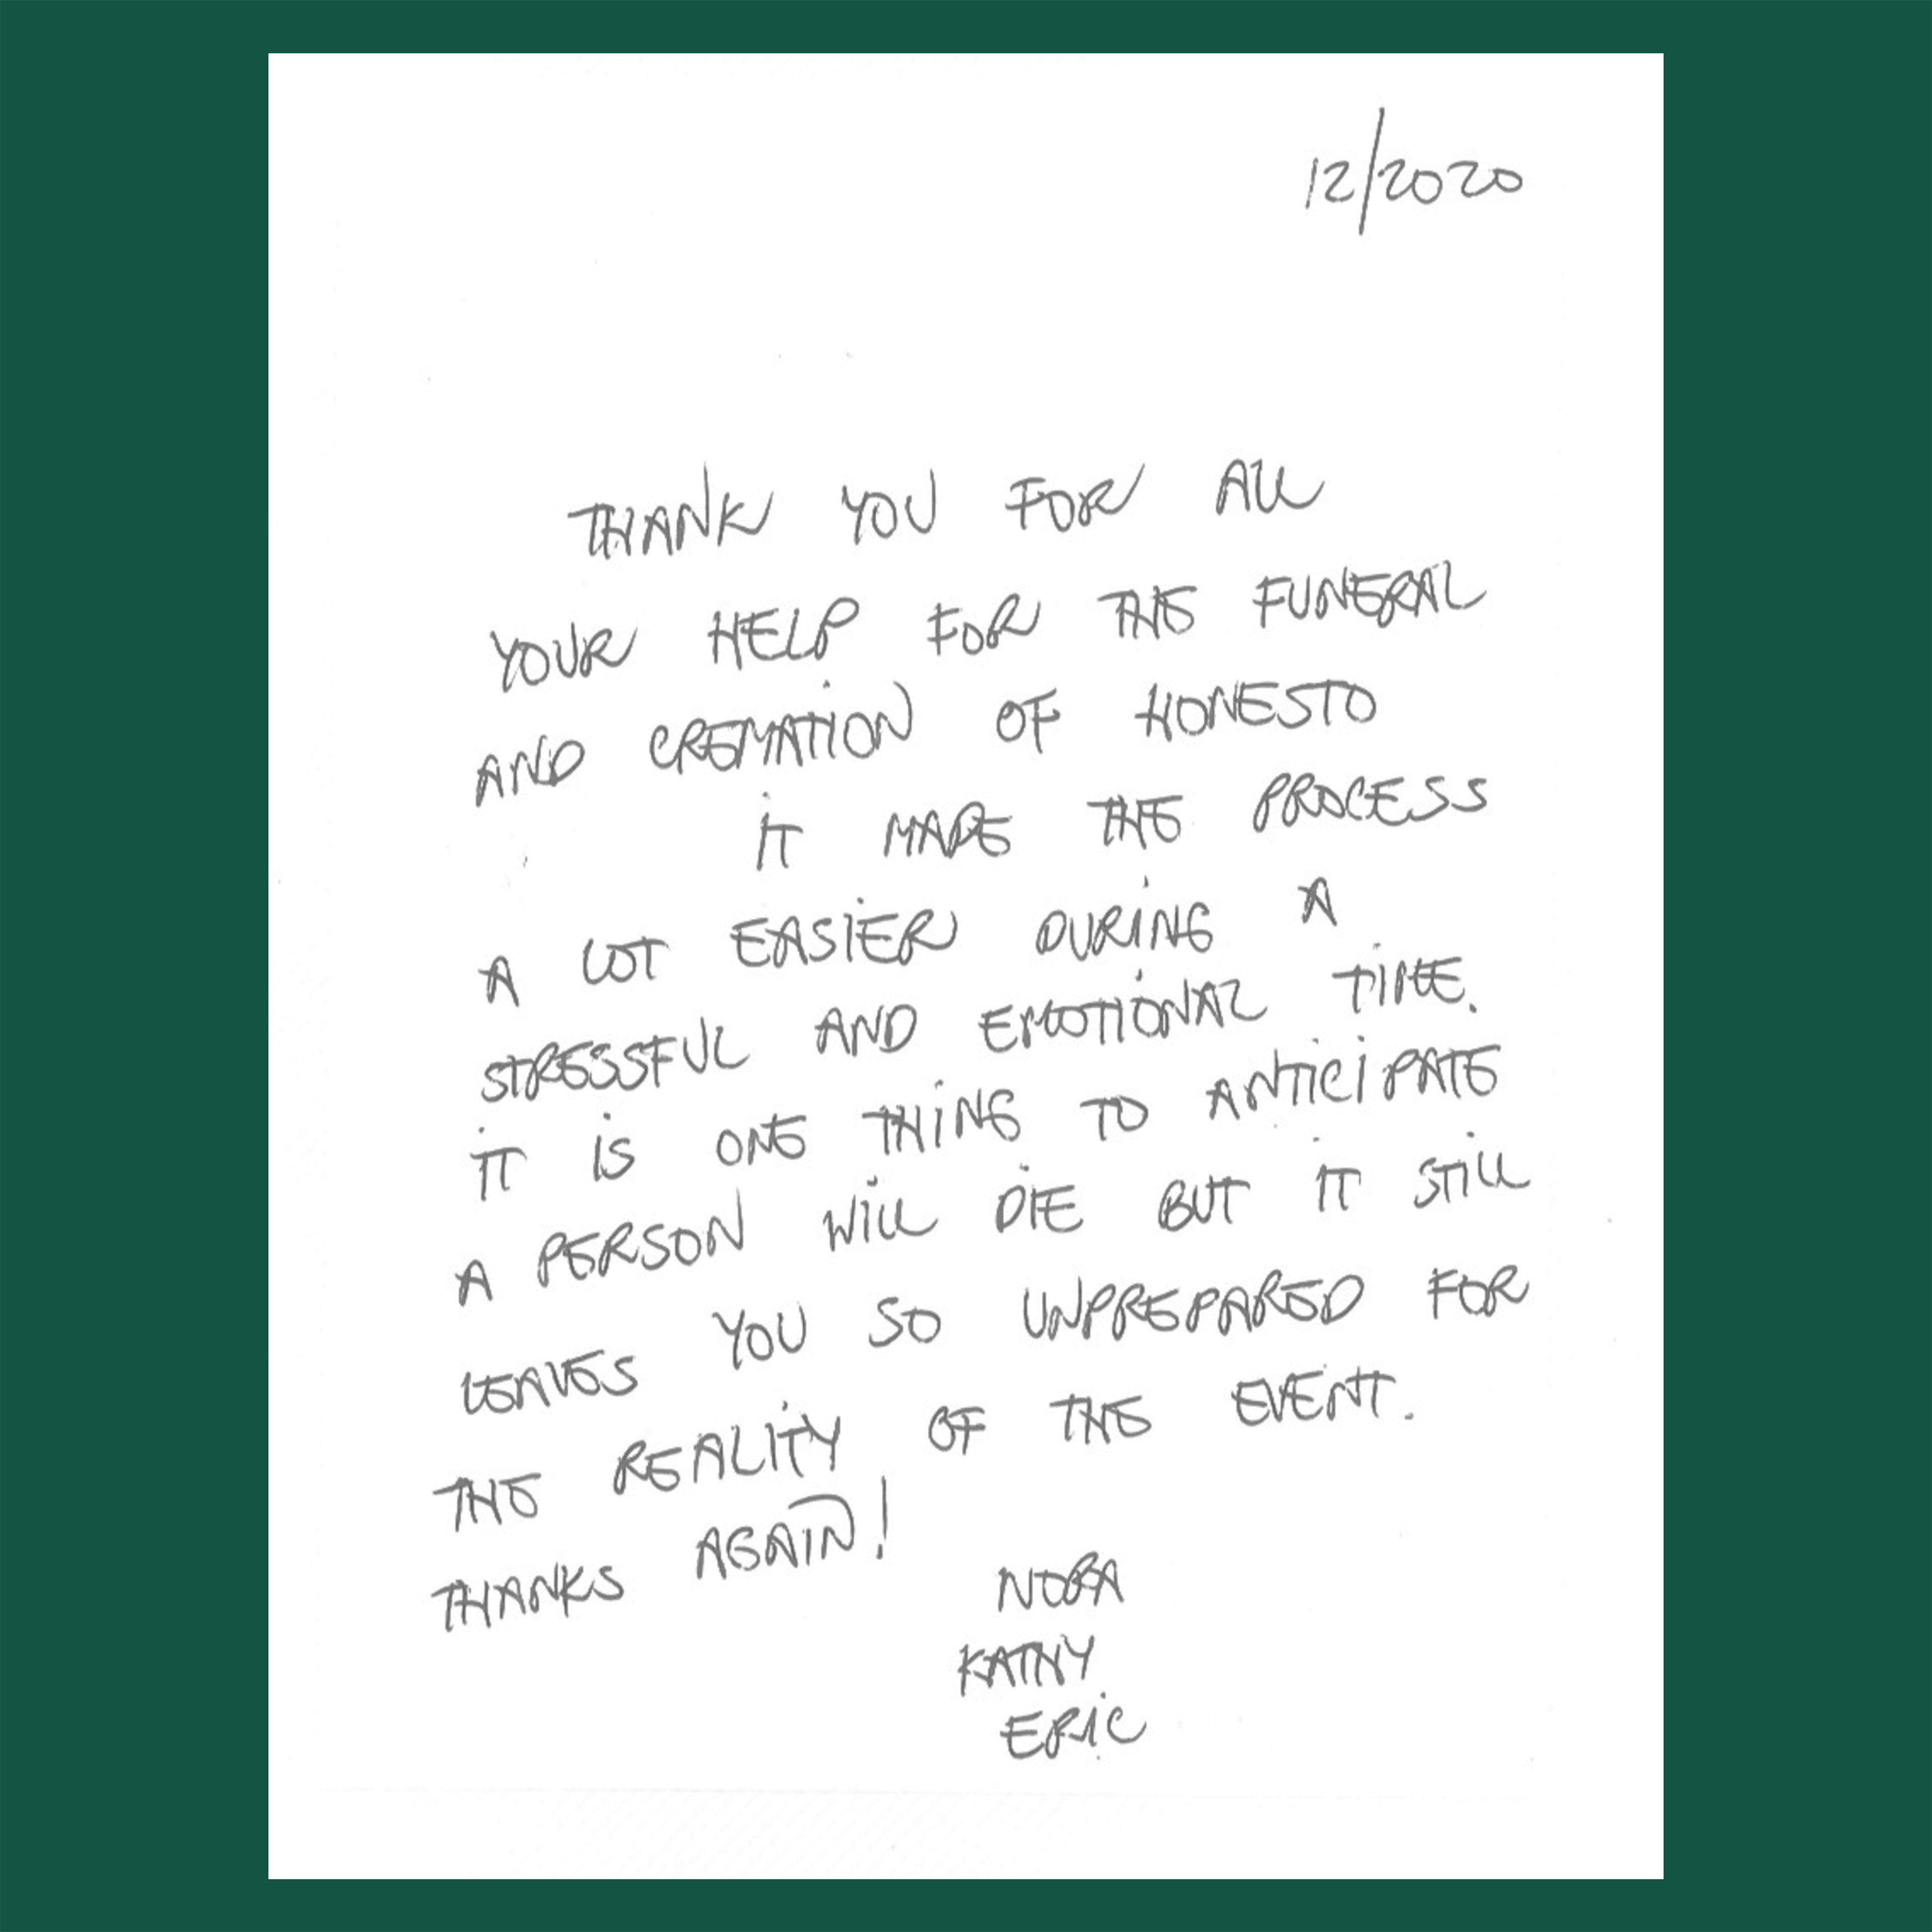 12/2020
THANK YOU FOR ALL
YOUR HELP FOR THE FUNERAL
AND CREMATION OF HONESTO
IT MADE THE PROCESS
A LOT EASIER DURING A
STRESSFUL AND EMOTIONAL TIME.
IT IS ONE THING TO ANTICIPATE
A PERSON WILL DIE BUT IT STILL
LEAVES YOU SO UNPREPARED FOR
THE REALITY OF THE EVENT.
THANKS AGAIN!
NORA
KATHY
ERIC